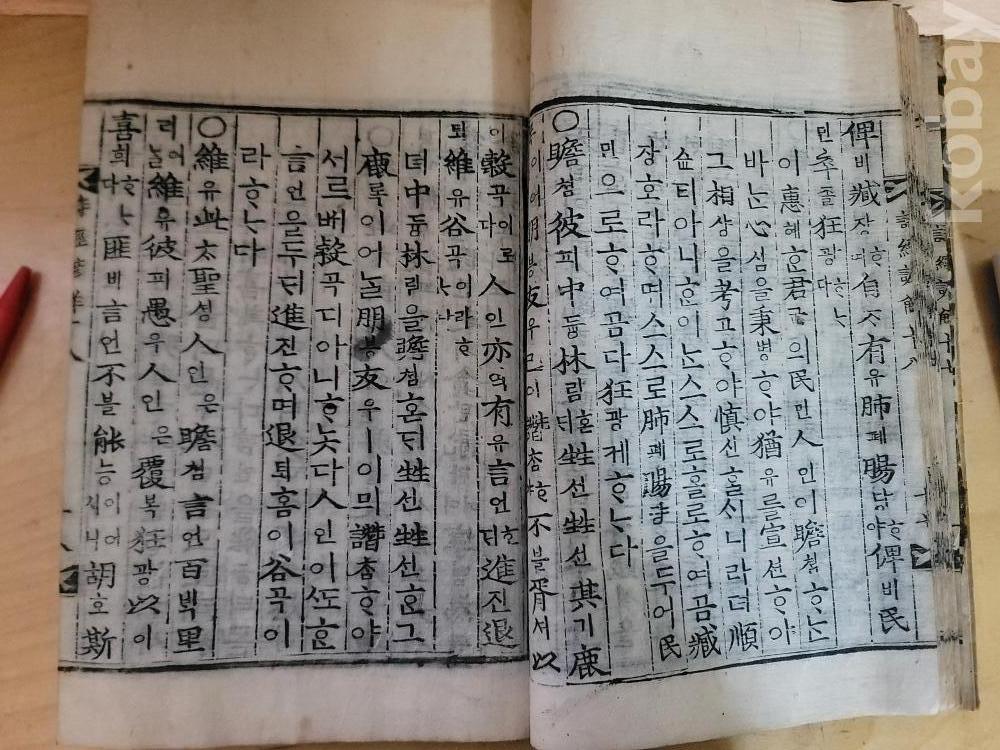 俾비臧장ᄒᆞ며自ᄌᆞ有유肺폐腸댱ᄒᆞ야俾비民
민卒졸狂광ᄒᆞᄂᆞ다
이惠혜ᄒᆞᆫ君군의民민人인이瞻쳠ᄒᆞᄂᆞᆫ
바ᄂᆞᆫ心심을秉병ᄒᆞ야猶유를宣션ᄒᆞ야
그相샹을考고ᄒᆞ야愼신ᄒᆞᆯᄉᆡ니라뎌順
슌티아니ᄒᆞᆫ이ᄂᆞᆫ스스로ᄒᆞᆯ로ᄒᆞ여곰臧
장ᄒᆞ라ᄒᆞ며스스로肺폐腸댱을두어民
민으로ᄒᆞ여곰다狂광케ᄒᆞᄂᆞ다
○瞻쳠彼피中듕林림혼ᄃᆡ甡선甡선其기鹿
이어朋붕友우已이譖참ᄒᆞ야不블胥셔以
이穀곡이로다人인亦역有유言언ᄒᆞᄃᆡ進진退
퇴維유谷곡이라ᄒᆞᄂᆞ나
뎌中듕林림을瞻쳠혼ᄃᆡ甡선甡선ᄒᆞᆫ그
鹿록이어ᄂᆞᆯ朋붕友우ㅣ이믜譖참ᄒᆞ야
서르ᄡᅥ穀곡디아니ᄒᆞ놋다人인이ᄯᅩᄒᆞᆫ
言언을두ᄃᆡ進진ᄒᆞ며退퇴홈이谷곡이
라ᄒᆞᄂᆞ다
○維유此ᄎᆞ聖셩人인은瞻쳠言언百ᄇᆡᆨ里
리어ᄂᆞᆯ維유彼피愚우人인은覆복狂광以이
喜희ᄒᆞᄂᆞ다匪비言언不블能능이어시니胡호斯
詩經諺解 十八
kobay